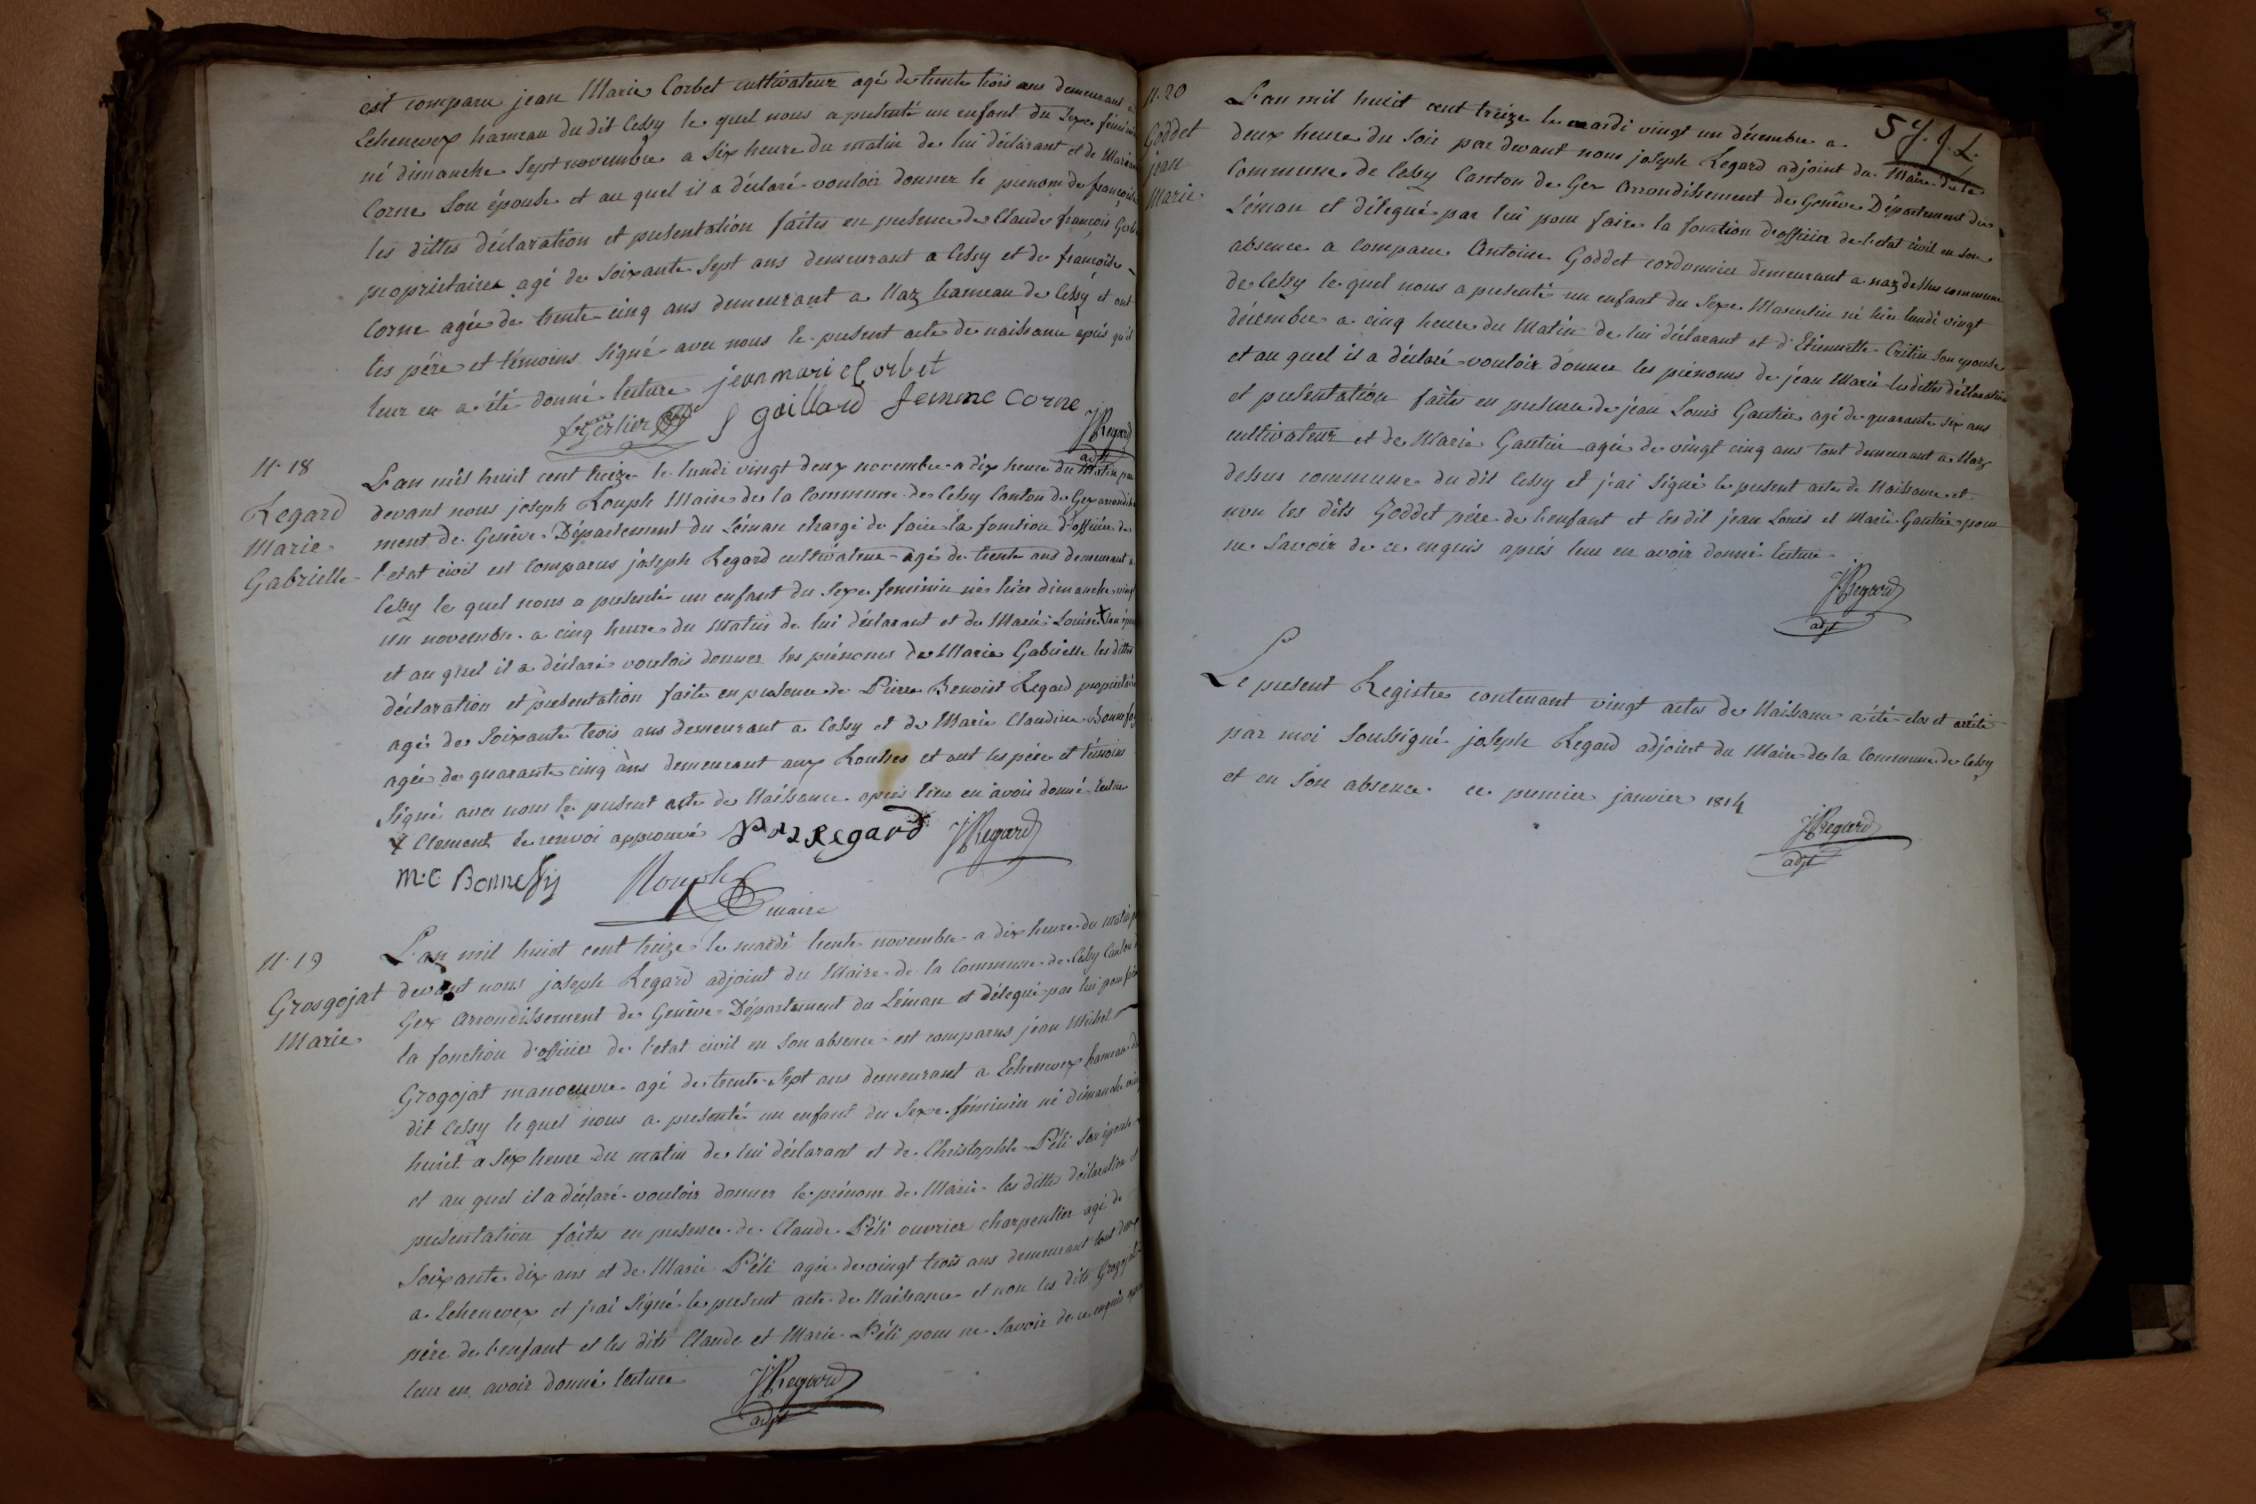 est comparu jean Marie Corbet cultivateur agé de trente trois ans demeurant a
Echenevex hameau du dit Cessy le quel nous a presenté un enfant du Sexe féminin
né dimanche Sept novembre a Six heure du matin de lui déclarant et de
Corne Son épouse et au quel il a déclaré vouloir donner le prenom de françoise
les dittes déclaration et presentation faites en presence de Claude françois
proprietaire agé de Soixante Sept ans demeurant a Cessy et de françoise
Corne agée de trente cinq ans demeurant a Naz hameau de Cessy et ont
les père et témoins Signé avec nous le present acte de naissance après qu'il
leur en a été donné lecture jean marie Corbet
f gerlier f gaillard femme corne JRegard
adjt
N. 18
Regard
Marie
Gabrielle
L'an mil huit cent treize le lundi vingt deux novembre a dix heure du Matin par
devant nous joseph Rouph Maire de la Commune de Cessy Canton de Gex arrondisse
ment de Genêve Département du Léman chargé de faire la fonction d'officier de
l'etat civil est Comparus joseph Regard cultivateur agé de trente ans demeurant a
Cessy le quel nous a presenté un enfant du Sexe feminin né hier dimanche vingt
un novembre a cinq heure du Matin de lui déclarant et de Marie Louise + Son
et au quel il a déclaré vouloir donner les prénoms de Marie Gabrielle les dittes
déclaration et presentation faite en presence de Pierre Benoist Regard propriétaire
agé de Soixante trois ans demeurant a Cessy et de Marie Claudine
agée de quarante cinq ans demeurant aux et ont les père et témoins
Signé avec nous le present acte de Naissance après leur en avoir donné lecture
+ Clement de renvoi approuvé Regard JRegard
M.C Rouph
maire
N. 19
Grosgojat
Marie
L'an mil huit cent treize le mardi trente novembre a dix heure du matin par
devant nous joseph Regard adjoint du Maire de la Commune de Cessy Canton de
Gex Arrondissement de Genêve Département du Léman et délegué par lui pour faire
la fonction d'officier de l'etat civil en Son absence est comparus jean Michel
Grogojat manoeuvre agé de trente Sept ans demeurant a Echenevex hameau du
dit Cessy le quel nous a presenté un enfant du Sexe féminin né dimanche vingt
huit a Sex heure du matin de lui déclarant et de Christophle Péli Son épouse
et au quel il a déclaré vouloir donner le prénom de Marie les dittes déclaration et
presentation faites en presence de Claude Péli ouvrier charpentier agé de
Soixante dix ans et de Marie Péli agée de vingt trois ans demeurant tout deux
a Echenevex et j'ai Signé le present acte de Naissance et non les dits Grogojat
père de l'enfant et les dits Claude et Marie Péli pour ne Savoir de ce enquis après
leur en avoir donné lecture JRegard
adjt
5
N. 20
Goddet
jean
Marie
L'an mil huit cent treize le mardi vingt un décembre a
deux heure du Soir par devant nous joseph Regard adjoint du Maire de la
Commune de Cessy Canton de Gex Arrondissement de Genêve Département du
Léman et délegué par lui pour faire la fonction d'officier de l'etat civil en Son
absence a Comparu Antoine Goddet cordonnier demeurant a naz dessus commune
de Cessy le quel nous a presenté un enfant du Sexe Masculin né hier lundi vingt
décembre a cinq heure du Matin de lui déclarant et d'Etiennette Son epouse
et au quel il a déclaré vouloir donner les prénoms de jean Marie les dittes déclaration
et presentation faites en presence de jean Louis Gautier agé de quarante Six ans
cultivateur et de Marie Gautier agée de vingt cinq ans tout demeurant a Naz
dessus commune du dit Cessy et j'ai Signé le present acte de Naissance et
non les dits Goddet père de l'enfant et les dit jean Louis et Marie Gautier pour
ne Savoir de ce enquis après leur en avoir donné lecture
JRegard
adjt
Le present Registre contenant vingt actes de Naissance a été clos et arrêté
par moi Soussigné joseph Regard adjoint du Maire de la Commune de Cessy
et en Son absence ce premier janvier 1814
JRegard
adjt